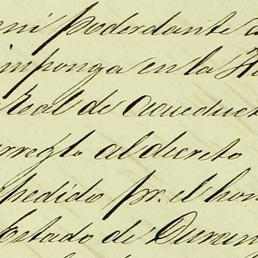 mi poderdante a
imponga en la H
Real de Acueduct
arreglo al decreto
pedido pr. el hon
Estado de Durang